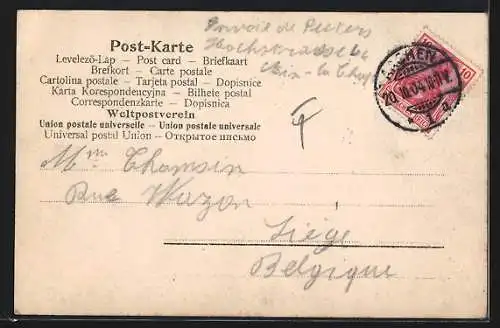 Post-Karte
Levelező-Lap — Post card — Briefkaart
Brefkort — Carte postale
Cartolina postale — Tarjeta postal — Dopisnice
Karta Korespondencyjna — Bilhete postal
Correspondenzkarte — Dopisnica
Weltpostverein
Union postale universelle — Union postale universale
Universal postal Union — Открытое письмо
Envoi de Peeters
Hochstrasse 16
Aix-la-Chap
10
Mme Chamsin
Rue Wazon
Liége
Belgique